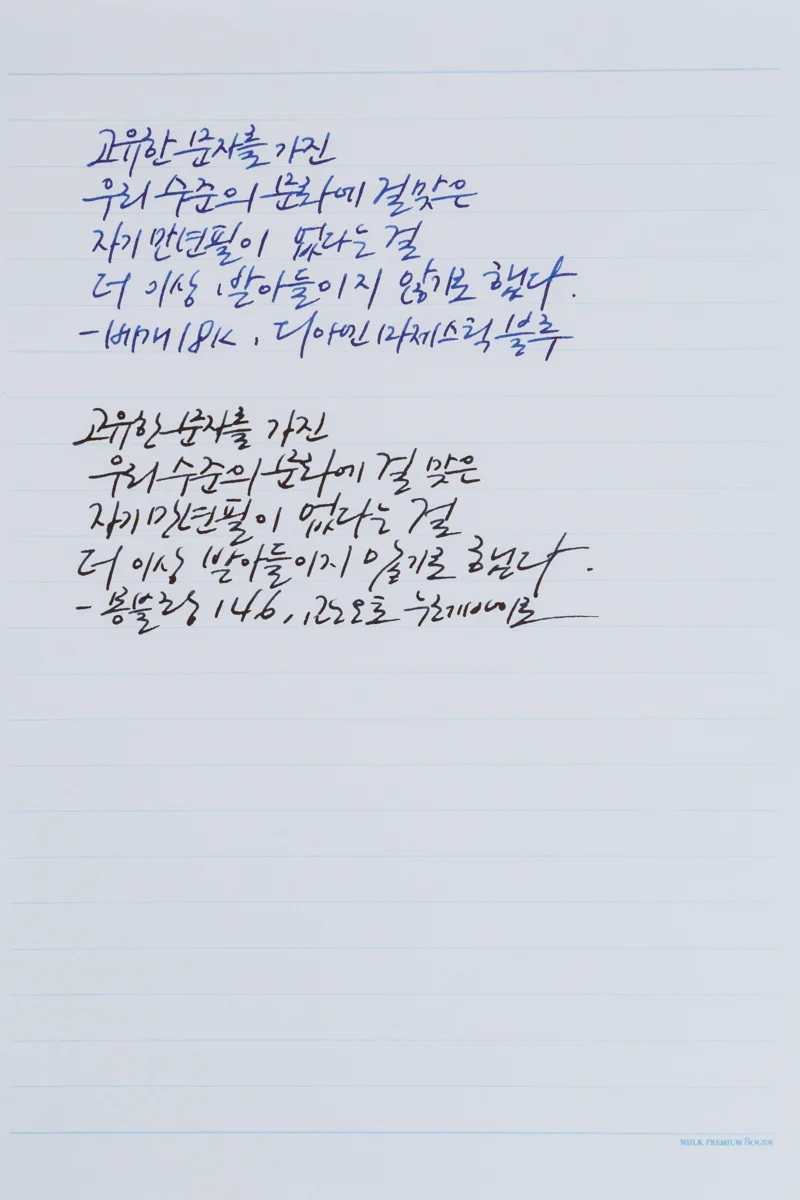 고유한 문자를 가진
우리 수준의 문화에 걸맞은
자기 만년필이 없다는 걸
더 이상 받아들이지 않기로 했다.
- 베개 18K, 디아민 마제스틱 블루
고유한 문자를 가진
우리 수준의 문화에 걸맞은
자기 만년필이 없다는 걸
더 이상 받아들이지 않기로 했다.
- 몽블랑 146,
MILK PREMIUM 80GSM